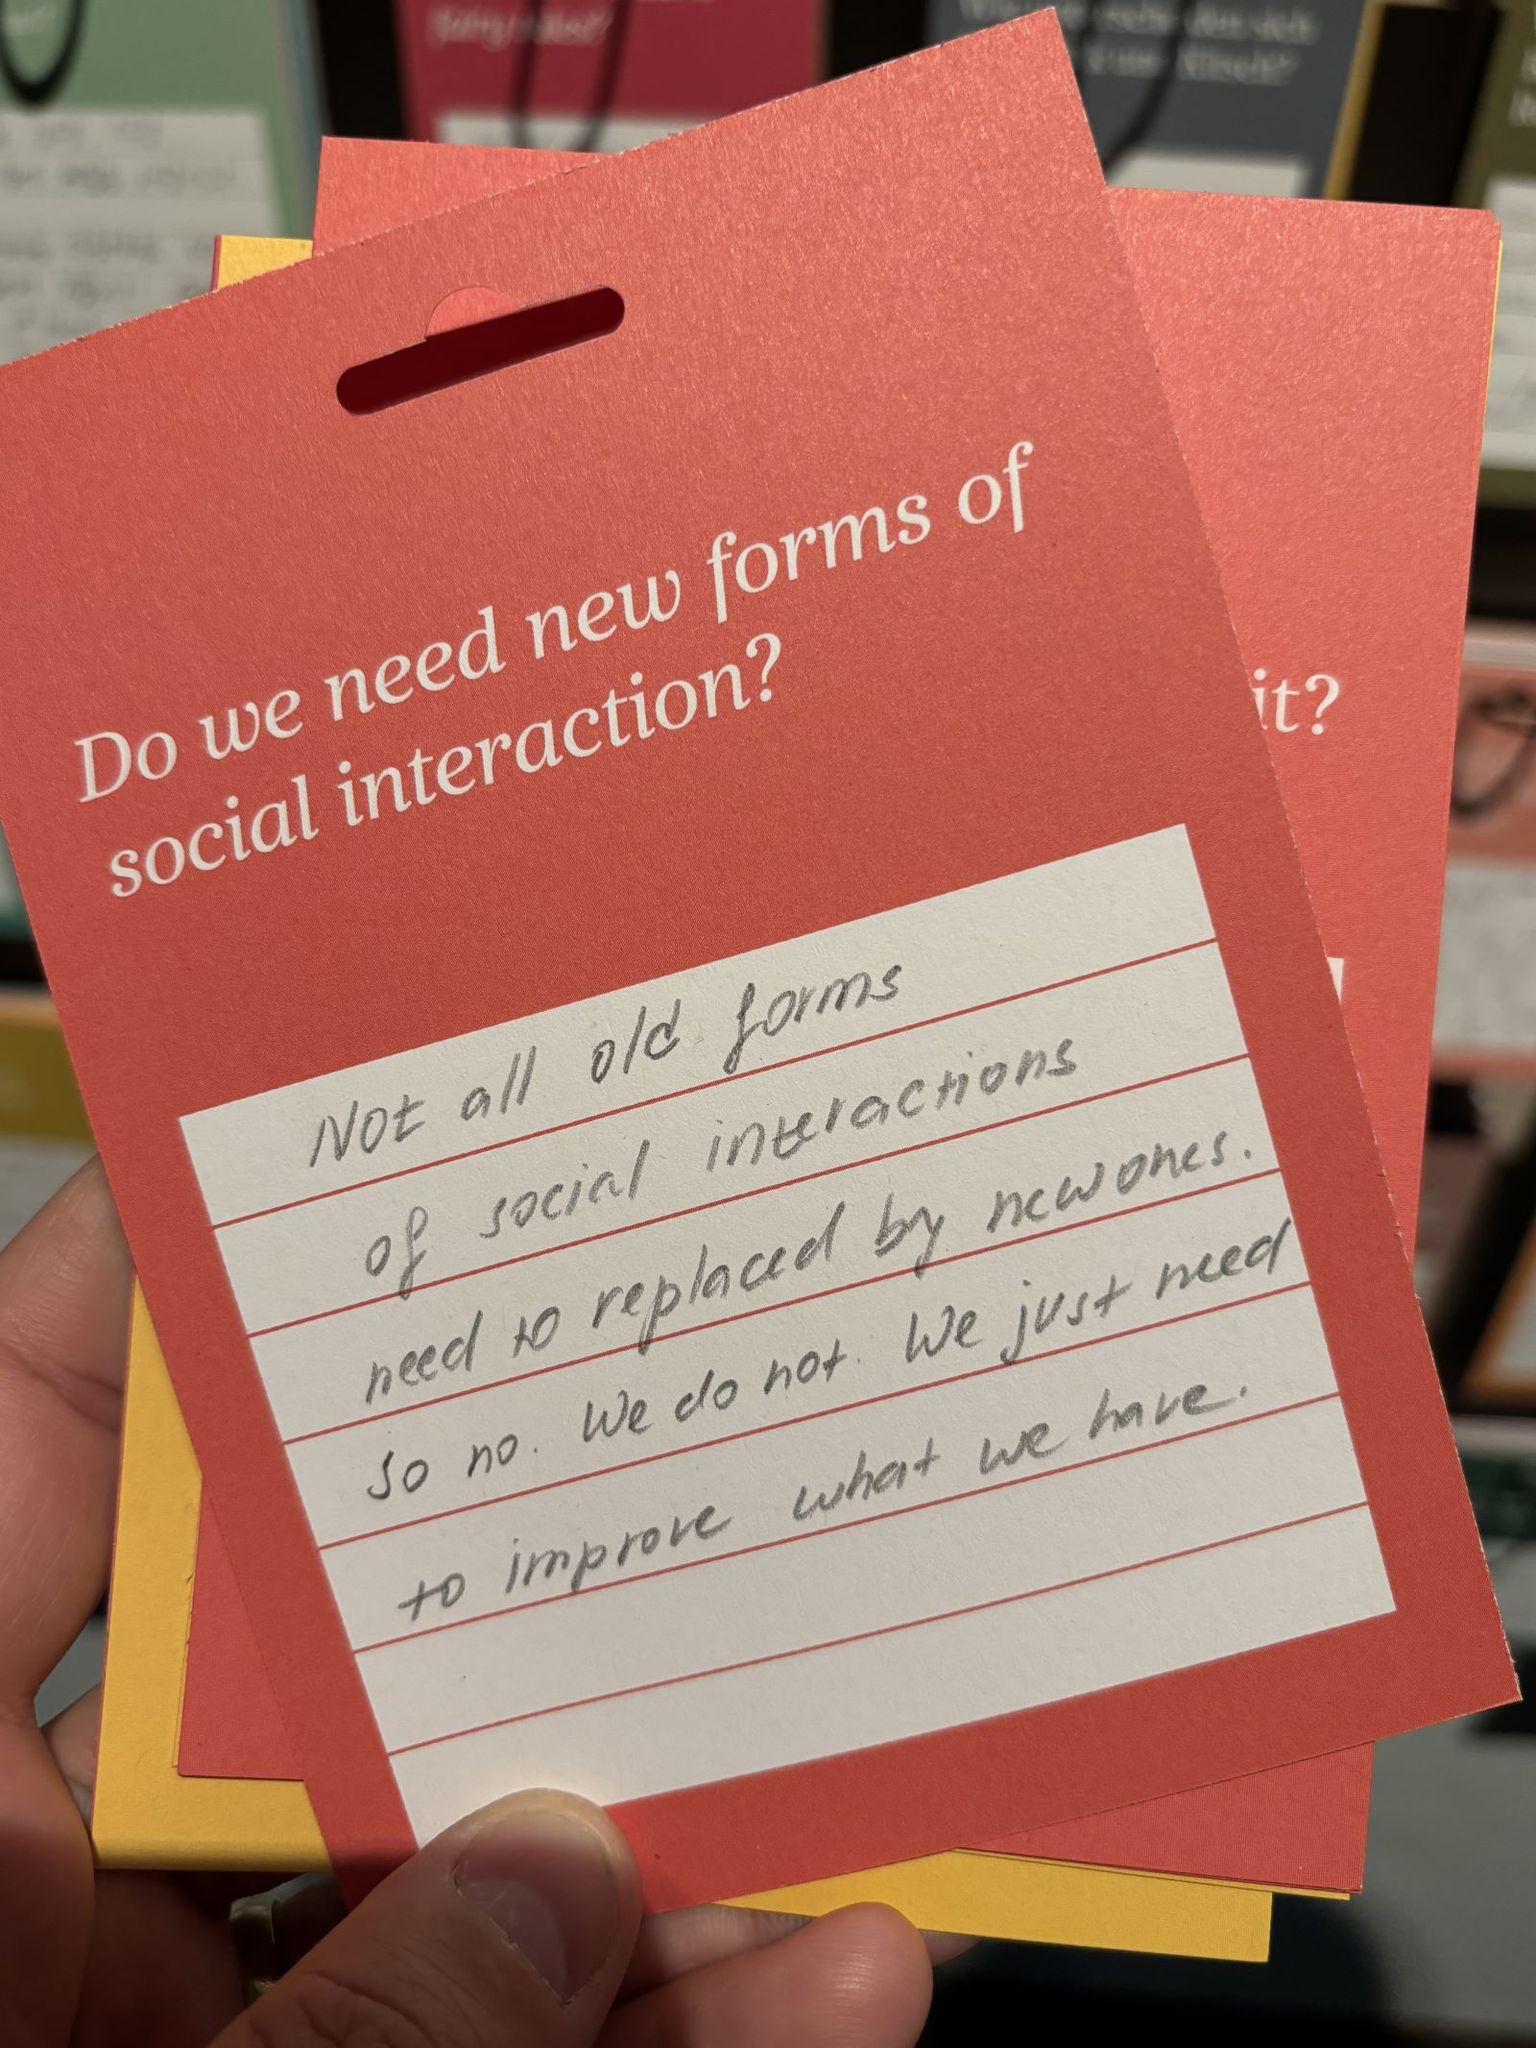 Do we need new forms of
social interaction?
it?
Not all old forms
of social interactions
need to replaced by new ones.
So no. We do not. We just need
to improve what we have.